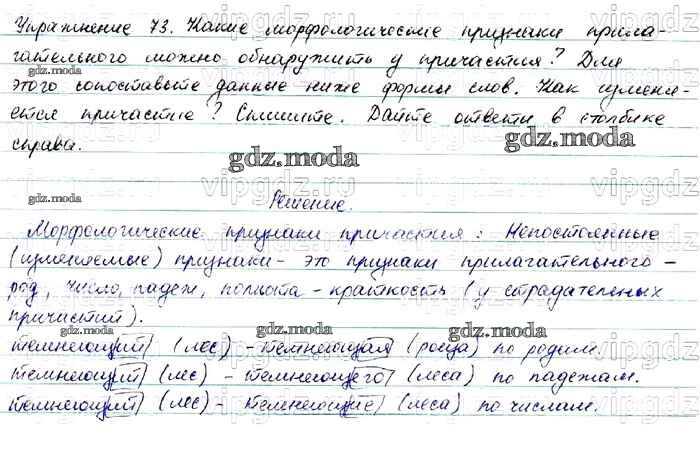 Упражнение 73. Какие морфологические признаки прила-
гательного можно обнаружить у причастия? Для
этого сопоставьте данные ниже формы слов. Как изменя-
ется причастие? Спишите. Дайте ответы в столбике
справа.
gdz.moda
Решение.
Морфологические признаки причастия: Непостоянные
(изменяемые) признаки - это признаки прилагательного -
род, число, падеж, полнота - краткость (у страдательных
причастий).
темнеющий (лес) - темнеющая (роща) по родам.
темнеющий (лес) - темнеющего (леса) по падежам.
темнеющий (лес) - темнеющие (леса) по числам.
gdz.moda
vipgdz.ru